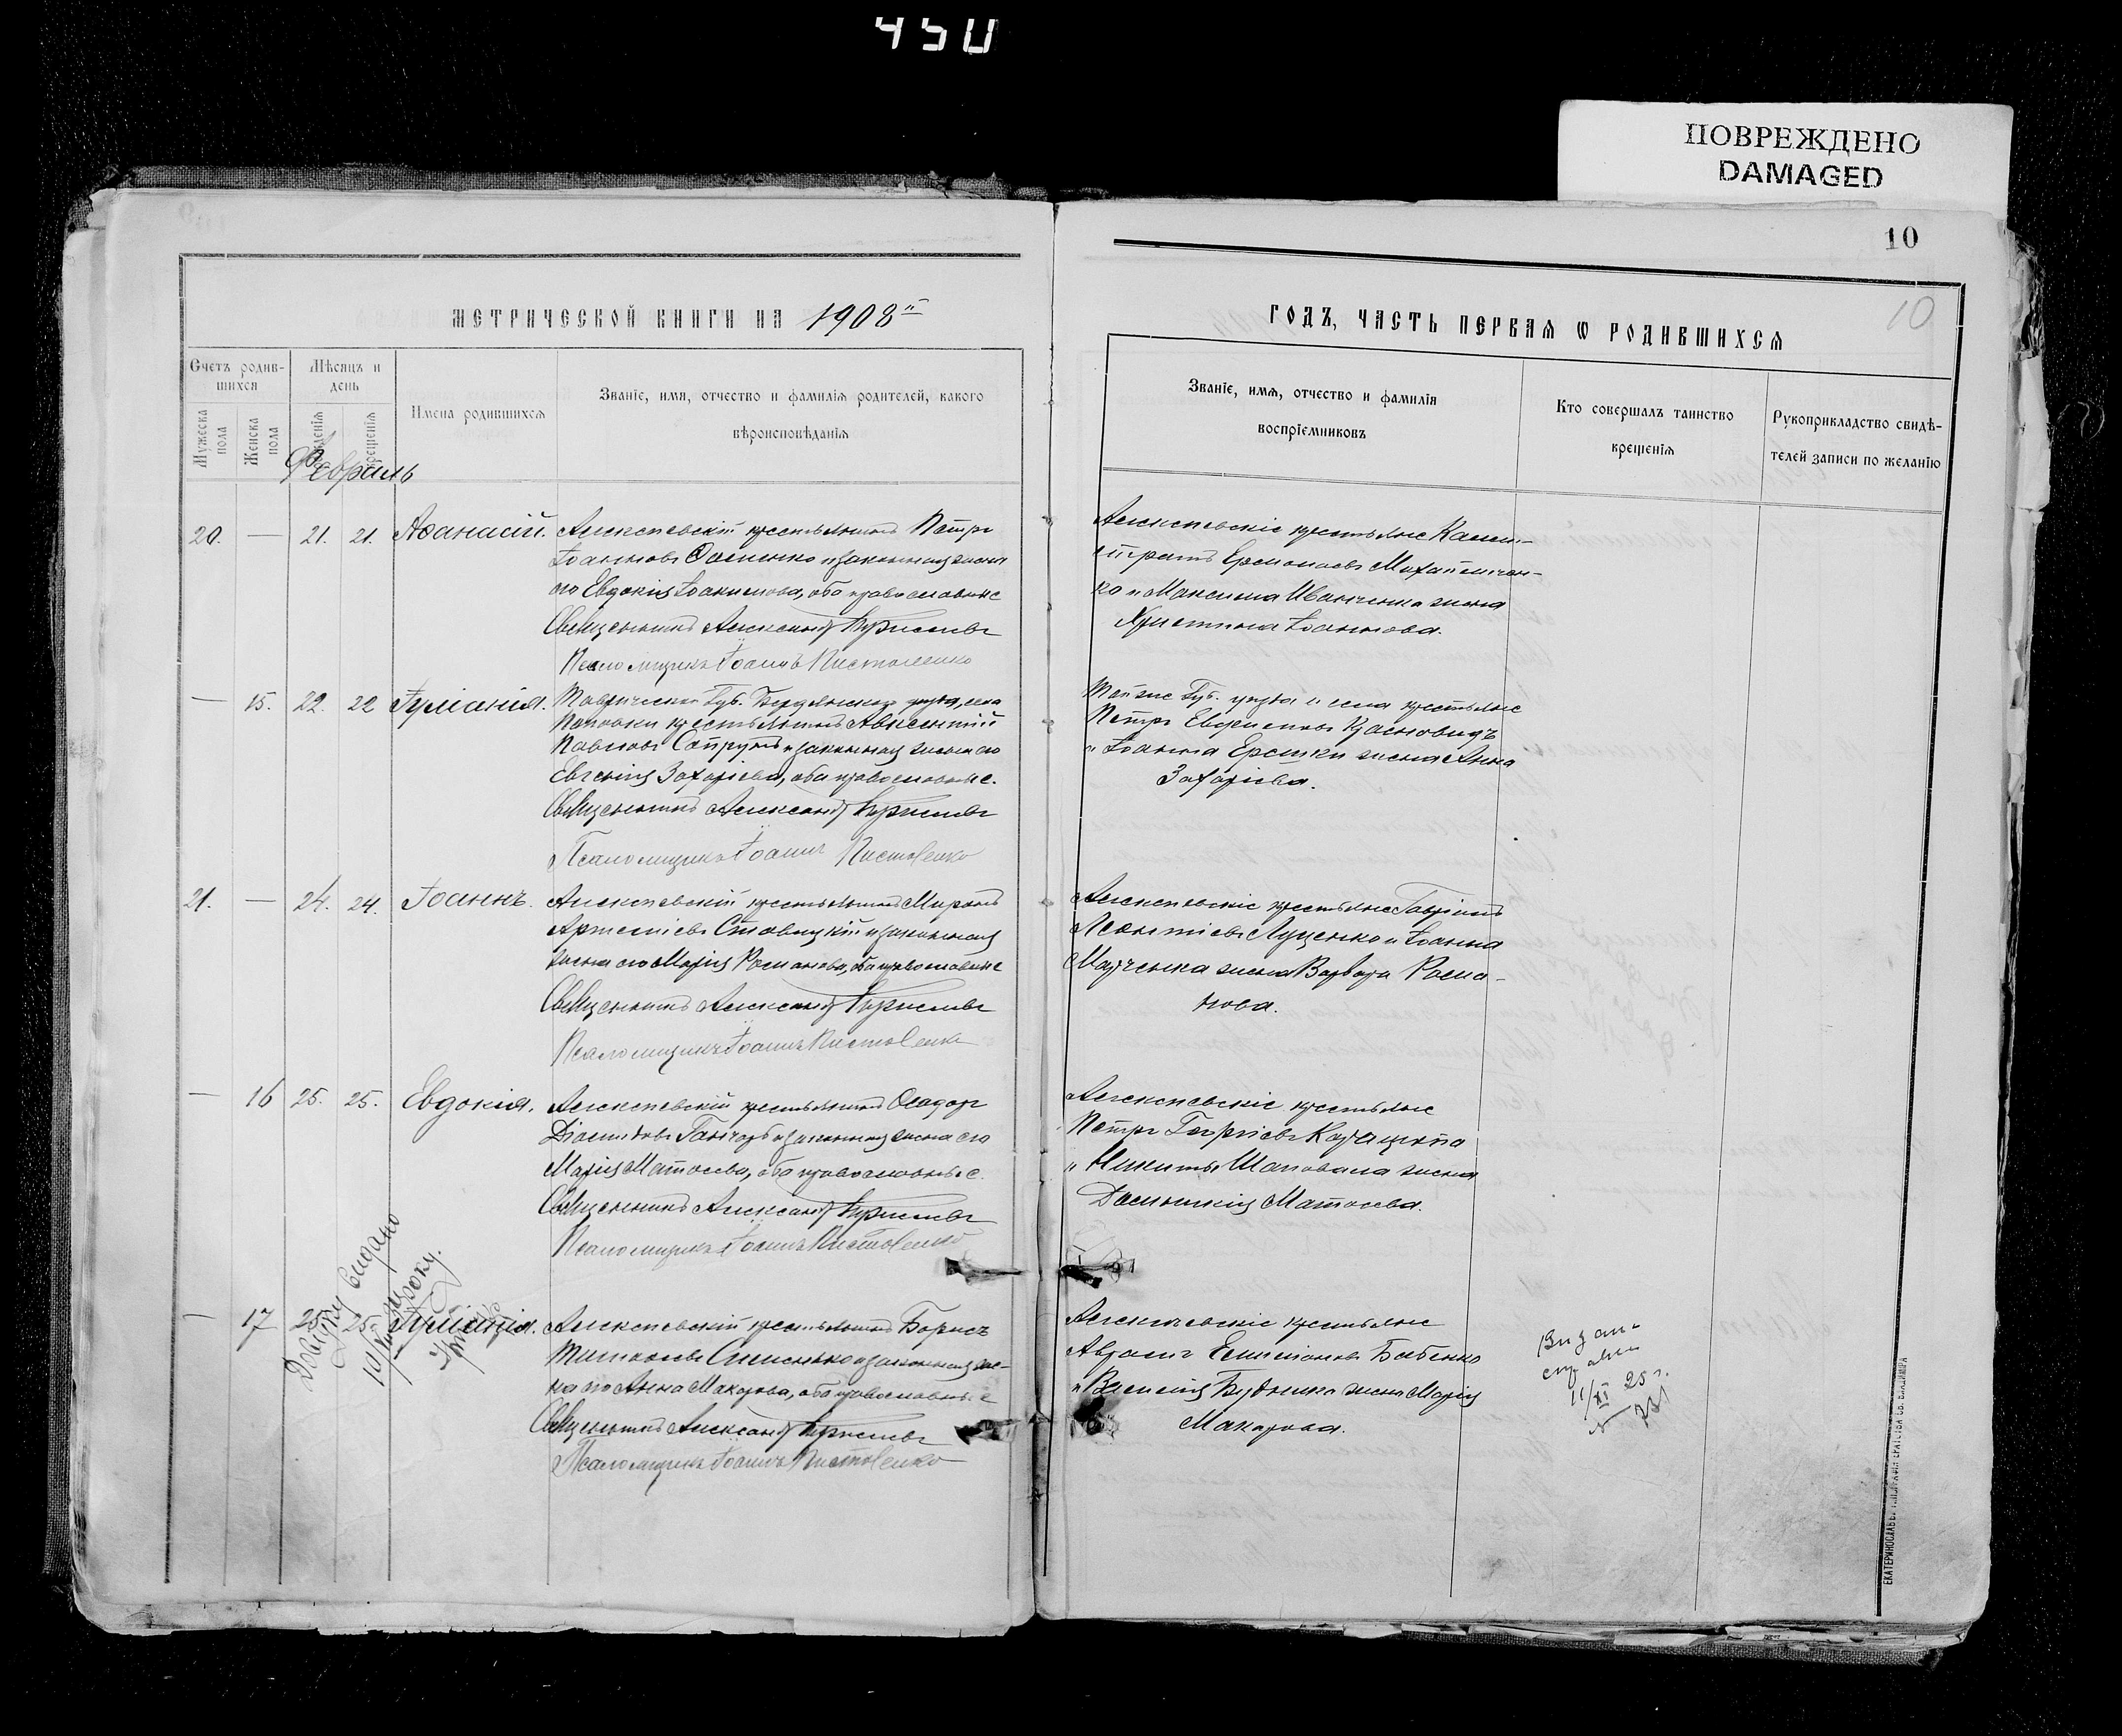 450
ПОВРЕЖДЕНО
DAMAGED
10
10
МЕТРИЧЕСКОЙ КНИГИ НА 1908й
Счетъ родив-
шихся
Мужеска пола
Женска пола
Мѣсяцъ и
день
крещенія
Имена родившихся
Званіе, имя, отчество и фамилія родителей, какого
вѣроисповѣданія
Февраль
20. — 21. 21. Аѳанасій. Алексѣевскій крестьянинъ Петръ
Іоанновъ и законная жена
его Евдокія Іоакимова, оба православные
Священникъ Александръ
Псаломщикъ Іоаннъ Пистоленко
— 15. 22. 22 Іуліанія. Таврической Губ. Бердянскаго уѣзда, села
Поповки крестьянинъ Авксентій
Павловъ Сапрунъ и законная жена его
Евгенія Захаріева, оба православные.
Священникъ Александръ
Псаломщикъ Іоаннъ Пистоленко
21. — 24. 24. Іоаннъ. Алексѣевскій крестьянинъ Миронъ
Артеміевъ Ставицкій и законная
жена его Марія Романова, оба православные
Священникъ Александръ
Псаломщикъ Іоаннъ Пистоленко
— 16 25. 25. Евдокія. Алексѣевскій крестьянинъ Ѳеодоръ
Діомидовъ Ганчаръ и законная жена его
Марія Матѳеева, оба православные.
Священникъ Александръ
Псаломщикъ Іоаннъ Пистоленко
— 17 25 25 Іуліанія. Алексѣевскій крестьянинъ Борисъ
Тимоѳеевъ Симоненко и законная же-
на его Анна Макарова, оба православные
Священникъ Александръ
Псаломщикъ Іоаннъ Пистоленко
Довідку видано
року.
ГОДЪ, ЧАСТЬ ПЕРВАЯ Ѡ РОДИВШИХСЯ
Званіе, имя, отчество и фамилія
воспріемниковъ
Кто совершалъ таинство
крещенія
Рукоприкладство свидѣ-
телей записи по желанію
Алексѣевскіе крестьяне Калли-
стратъ Ермолаевъ Михайличен-
ко и Максима Иванченка жена
Христина Іоаннова.
Той же Губ. уѣзда и села крестьяне
Петръ Евфимовъ Красновидъ
и Іоанна Ерёмки жена Анна
Захаріева.
Алексѣевскіе крестьяне Гавріилъ
Леонтіевъ Луценко и Іоанна
Марченка жена Варвара Рома-
нова.
Алексѣевскіе крестьяне
Петръ Георгіевъ
и Никиты Шаповала жена
Домникія Матѳеева.
Алексѣевскіе крестьяне
Авраамъ Емиліановъ Бабенко
и Василія Будника жена Марія
Макарова.
11/XI 25 г.